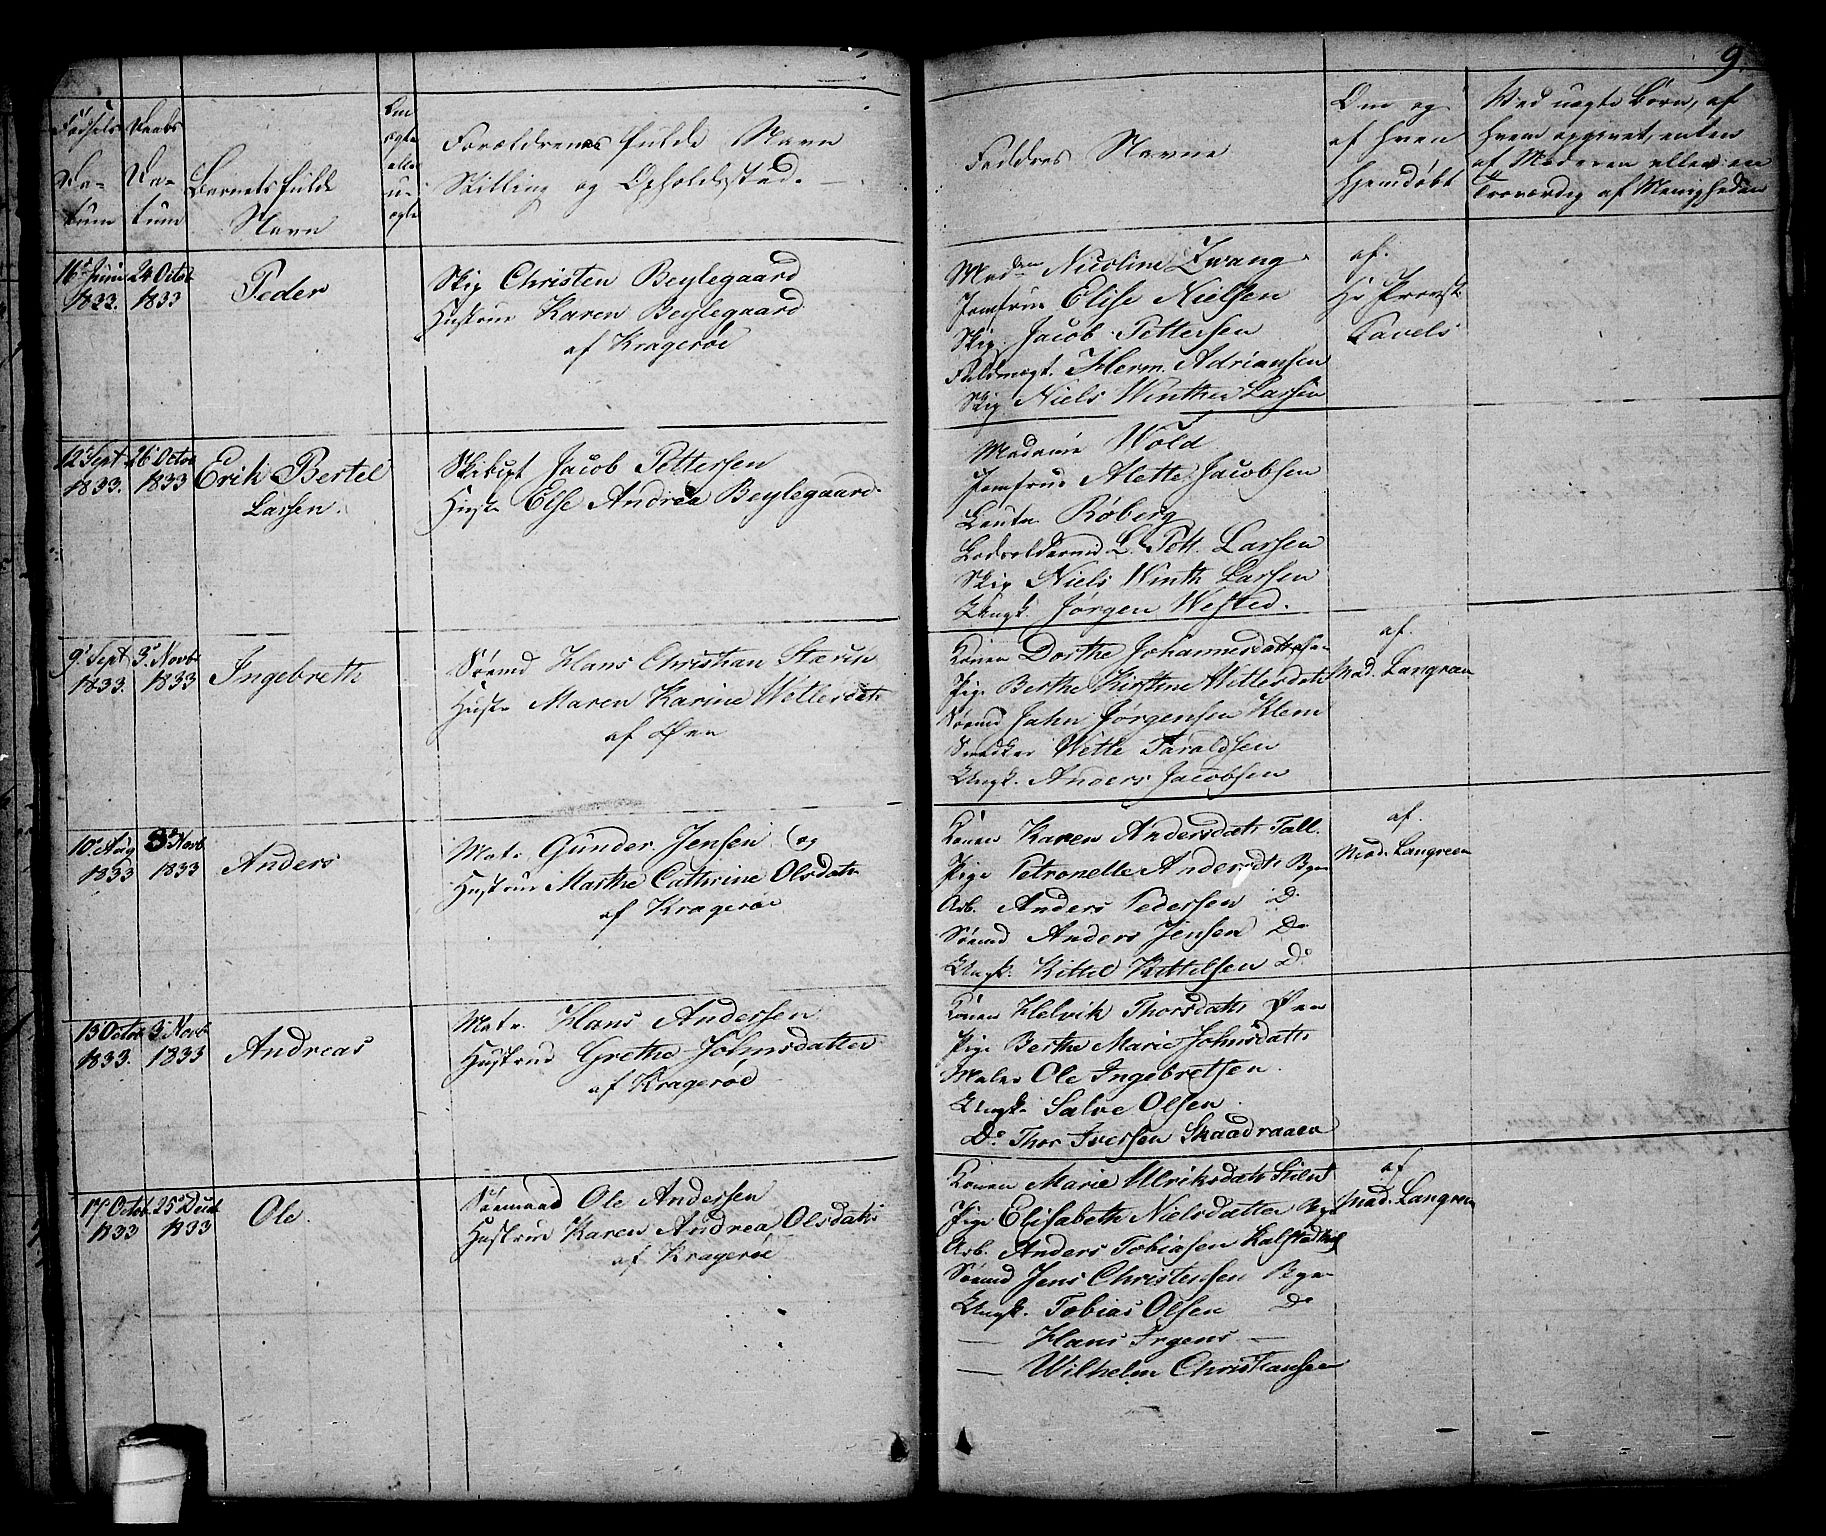 9.
Fødsels
Da-
tum
Daabs
Da-
tum
Barnets fulde
Navn
Om
ægte
eller
u-
ægte
Forældrenes fulde Navn
Stilling og Opholdssted.
Faddres Navne
Om og
af hvem
hjemdøbt
Ved uægte Børn, af
hvem opgivet, enten
af Moderen eller en
Troværdig af Menigheden
16 Juni 24 Octob
1833. 1833
Peder
Skip Christen Beylegaard
Hustrue Karen Beylegaard
af Kragerøe
Madm Nicoline Zwang
Jomfrue Elise Nielsen
Skip. Jacob Pettersen
Fuldmegt. Herm. Adriansen
Skip Niels Winther Larsen
af.
Hr Provst
Tavels
12 Sept 26 Octbr
1833. 1833
Erik Bertel
Larsen.
Jacob Pettersen
Hust Else Andrea Beylegaard
Madame Wold
Jomfrue Alette Jacobsen
Røberg
L. Pett. Larsen
Skip Niels Winth Larsen
Ungk. Jørgen Wefled.
9 Sept 3 Novb
1833. 1833
Ingebreth
Sømd Hans Christian
Hust Maren Karine Wettlesdatr
af Øen
Konen Dorthe Johannesdatter
Pige Berthe Kirstine Wettlesdatr
Sømd Jahn Jørgensen Klem
Snedker Wettle Taraldsen
Ungk. Anders Jacobsen
af.
Mad. Langreen
10 Aug 3 Novb.
1833 1833
Anders
Matr. Gunder Jensen og
Hustrue Marthe Cathrine Olsdatr
af Kragerøe
Konen Karen Andersdatr Tall.
Pige Petronelle Andersdt Byen
Arb. Anders Pedersen Do
Sømd Anders Jensen Do
Ungk. Kittel Kittelsen Do
af.
Mad. Langreen
13 Octob 3 Novb
1833. 1833
Andreas
Matr. Hans Andersen
Hustrue Grethe Johnsdatter
af Kragerøe
Konen Helvik Thorsdatr Øen
Pige Berthe Marie Johnsdatr
Maler Ole Ingebretsen.
Ungk. Salve Olsen.
Do Thor Iversen Skaadraaen
17 Octob. 25 Decb
1833 1833
Ole.
Sømand Ole Andersen
Hustrue Karen Andrea Olsdatr
af Kragerøe
Konen Marie Ulriksdatr
Pige Elisabeth Nielsdatter
Arb. Anders Tobiasen
Sømd Jens Christensen Byen
Ungk. Tobias Olsen Do
— Hans Irgens. —
— Wilhelm Christiansen
af
Mad. Langreen